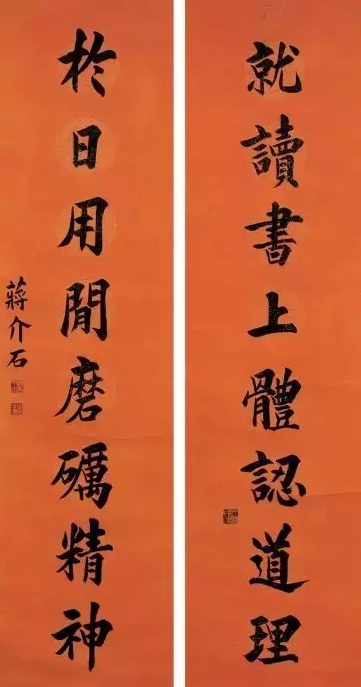 就讀書上體認道理
於日用閒磨礪精神
蔣介石